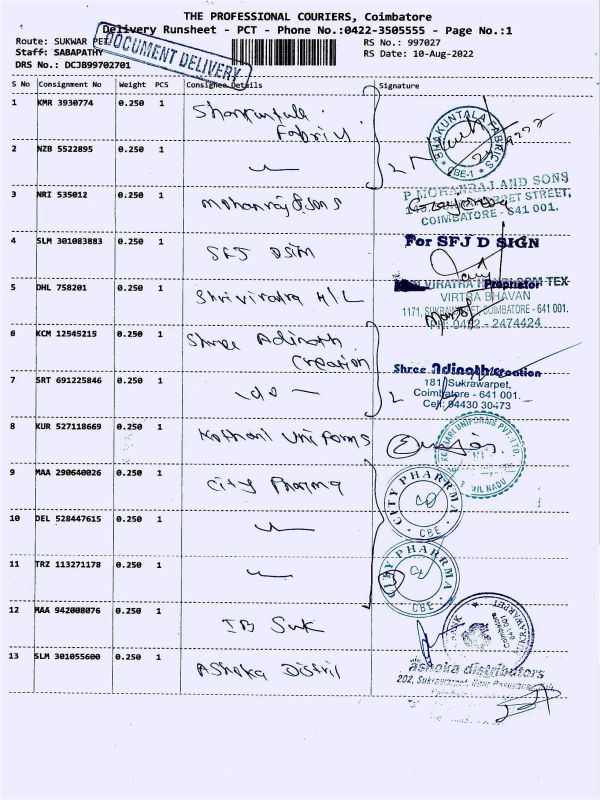 THE PROFESSIONAL COURIERS, Coimbatore
Delivery Runsheet - PCT - Phone No.:0422-3505555 - Page No.:1
Route: SUKWAR PET
RS No.: 997027
Staff: SABAPATHY
RS Date: 10-Aug-2022
DRS No.: DCJB99702701
DOCUMENT DELIVERY
S No Consignment No Weight PCS Consignee Details Signature
1 KMR 3930774 0.250 1 Fabric
SHAKUNTALA FABRICS CBE-1
2 NZB 5522895 0.250 1
3 NRI 535012 0.250 1 Mohanraj & Sons
P. MOHANRAJ AND SONS
STREET,
COIMBATORE - 641 001.
4 SLM 301083883 0.250 1 SFJ DSIM
For SFJ D SIGN
Proprietor
5 DHL 758201 0.250 1 Shri Viratra H/L
VIRATRA TEX
VIRTRA BHAVAN
1171, COIMBATORE - 641 001.
PH: 0422 - 2474424
6 KCM 12545215 0.250 1 Shree Adinath
Creation
Shree Adinath Creation
181, Sukrawarpet,
Coimbatore - 641 001.
Cell: 94430 30473
7 SRT 691225846 0.250 1 - do -
8 KUR 527118669 0.250 1 Kothari Uniforms
KOTHARI UNIFORMS PVT. LTD.
TAMIL NADU
9 MAA 290640026 0.250 1 City Pharma
CITY PHARRMA CBE
10 DEL 528447615 0.250 1
11 TRZ 113271178 0.250 1
CITY PHARRMA CBE
12 MAA 942008076 0.250 1 IB Suk
13 SLM 301055600 0.250 1 Ashoka Distri
ashoka distributors
202, Sukrawarpet,